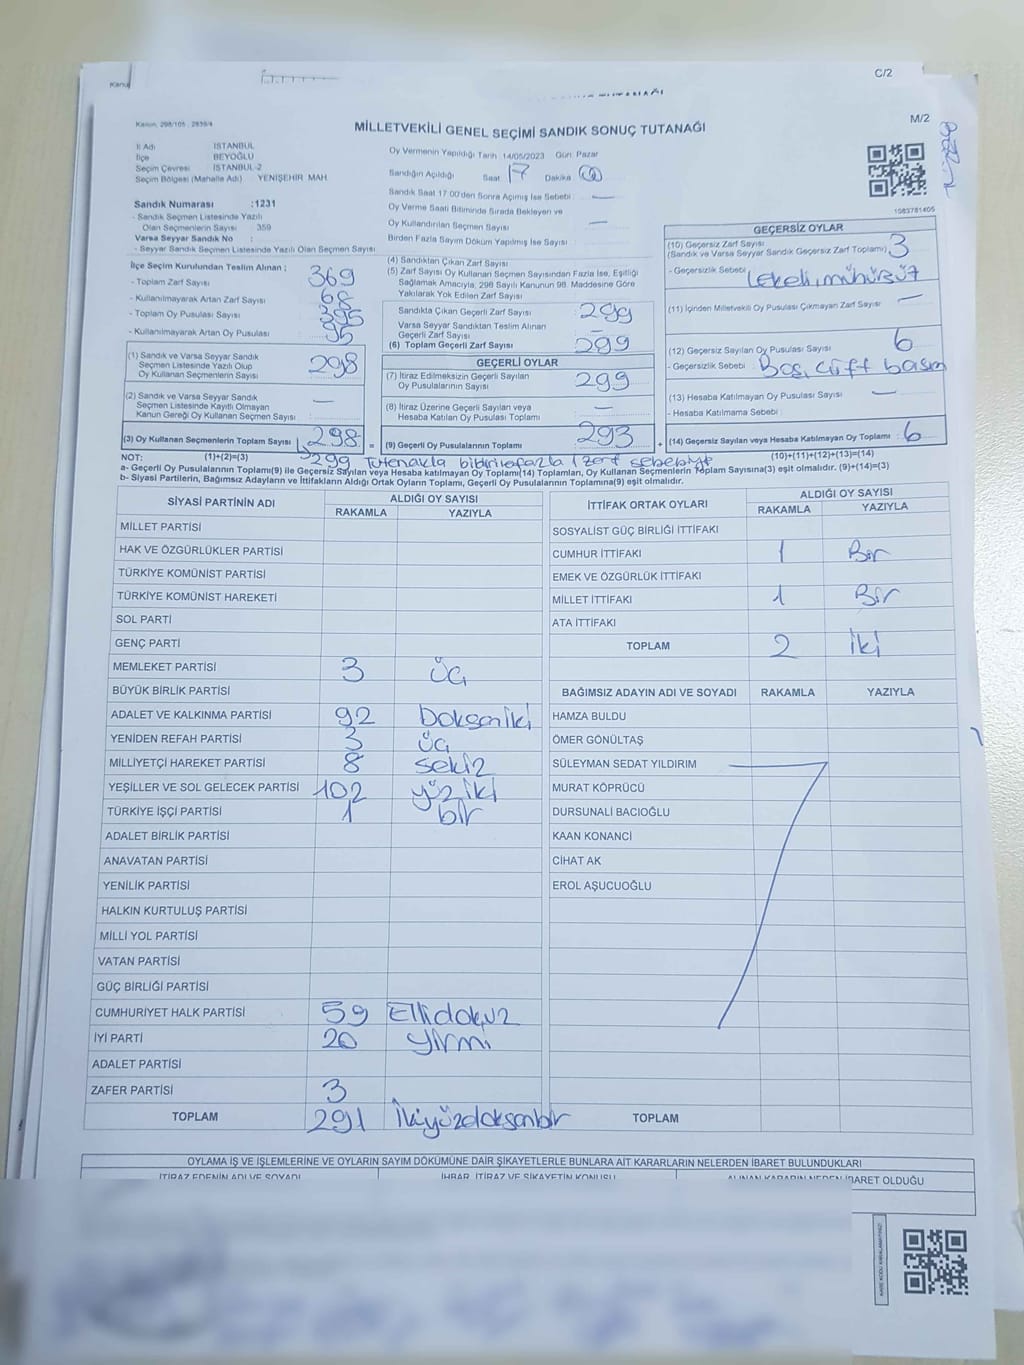 Kanu
C/2
TUTANAĞI
Kanun, 298/105 , 2839/4
MİLLETVEKİLİ GENEL SEÇİMİ SANDIK SONUÇ TUTANAĞI
M/2
İl Adı İSTANBUL
İlçe BEYOĞLU
Seçim Çevresi İSTANBUL-2
Seçim Bölgesi (Mahalle Adı) YENİŞEHİR MAH.
Oy Vermenin Yapıldığı Tarih 14/05/2023 Gün Pazar
Sandığın Açıldığı Saat 17 Dakika 00
Sandık Saat 17:00'den Sonra Açılmış İse Sebebi : —
Oy Verme Saati Bitiminde Sırada Bekleyen ve
Oy Kullandırılan Seçmen Sayısı —
Birden Fazla Sayım Döküm Yapılmış İse Sayısı
Sandık Numarası :1231
- Sandık Seçmen Listesinde Yazılı
Olan Seçmenlerin Sayısı 359
Varsa Seyyar Sandık No
- Seyyar Sandık Seçmen Listesinde Yazılı Olan Seçmen Sayısı
İlçe Seçim Kurulundan Teslim Alınan ;
- Toplam Zarf Sayısı 369
- Kullanılmayarak Artan Zarf Sayısı 68
- Toplam Oy Pusulası Sayısı 395
- Kullanılmayarak Artan Oy Pusulası 95
(1) Sandık ve Varsa Seyyar Sandık
Seçmen Listesinde Yazılı Olup
Oy Kullanan Seçmenlerin Sayısı 298
(2) Sandık ve Varsa Seyyar Sandık
Seçmen Listesinde Kayıtlı Olmayan
Kanun Gereği Oy Kullanan Seçmen Sayısı —
(3) Oy Kullanan Seçmenlerin Toplam Sayısı 298 =
(4) Sandıktan Çıkan Zarf Sayısı
(5) Zarf Sayısı Oy Kullanan Seçmen Sayısından Fazla İse, Eşitliği
Sağlamak Amacıyla, 298 Sayılı Kanunun 98. Maddesine Göre
Yakılarak Yok Edilen Zarf Sayısı
Sandıkta Çıkan Geçerli Zarf Sayısı 299
Varsa Seyyar Sandıktan Teslim Alınan
Geçerli Zarf Sayısı —
(6) Toplam Geçerli Zarf Sayısı 299
GEÇERLİ OYLAR
(7) İtiraz Edilmeksizin Geçerli Sayılan
Oy Pusulalarının Sayısı 299
(8) İtiraz Üzerine Geçerli Sayılan veya
Hesaba Katılan Oy Pusulası Toplamı —
(9) Geçerli Oy Pusulalarının Toplamı 293 +
1583781405
GEÇERSİZ OYLAR
(10) Geçersiz Zarf Sayısı
(Sandık ve Varsa Seyyar Sandık Geçersiz Zarf Toplamı) 3
- Geçersizlik Sebebi Lekeli, mühürsüz
(11) İçinden Milletvekili Oy Pusulası Çıkmayan Zarf Sayısı —
(12) Geçersiz Sayılan Oy Pusulası Sayısı 6
- Geçersizlik Sebebi Boş, çift basım
(13) Hesaba Katılmayan Oy Pusulası Sayısı —
- Hesaba Katılmama Sebebi
(14) Geçersiz Sayılan veya Hesaba Katılmayan Oy Toplamı 6
NOT: (1)+(2)=(3) (10)+(11)+(12)+(13)=(14)
299 Tutanakla bildirile fazla 1 zarf sebebiyle
a- Geçerli Oy Pusulalarının Toplamı(9) ile Geçersiz Sayılan veya Hesaba katılmayan Oy Toplamı(14) Toplamları, Oy Kullanan Seçmenlerin Toplam Sayısına(3) eşit olmalıdır. (9)+(14)=(3)
b- Siyasi Partilerin, Bağımsız Adayların ve İttifakların Aldığı Ortak Oyların Toplamı, Geçerli Oy Pusulalarının Toplamına(9) eşit olmalıdır.
SİYASİ PARTİNİN ADI ALDIĞI OY SAYISI
RAKAMLA YAZIYLA
MİLLET PARTİSİ
HAK VE ÖZGÜRLÜKLER PARTİSİ
TÜRKİYE KOMÜNİST PARTİSİ
TÜRKİYE KOMÜNİST HAREKETİ
SOL PARTİ
GENÇ PARTİ
MEMLEKET PARTİSİ 3 üç
BÜYÜK BİRLİK PARTİSİ
ADALET VE KALKINMA PARTİSİ 92 Doksaniki
YENİDEN REFAH PARTİSİ 3 üç
MİLLİYETÇİ HAREKET PARTİSİ 8 sekiz
YEŞİLLER VE SOL GELECEK PARTİSİ 102 yüz iki
TÜRKİYE İŞÇİ PARTİSİ 1 bir
ADALET BİRLİK PARTİSİ
ANAVATAN PARTİSİ
YENİLİK PARTİSİ
HALKIN KURTULUŞ PARTİSİ
MİLLİ YOL PARTİSİ
VATAN PARTİSİ
GÜÇ BİRLİĞİ PARTİSİ
CUMHURİYET HALK PARTİSİ 59 Ellidokuz
İYİ PARTİ 20 yirmi
ADALET PARTİSİ
ZAFER PARTİSİ 3
TOPLAM 291 İkiyüzdoksanbir
İTTİFAK ORTAK OYLARI ALDIĞI OY SAYISI
RAKAMLA YAZIYLA
SOSYALİST GÜÇ BİRLİĞİ İTTİFAKI
CUMHUR İTTİFAKI 1 Bir
EMEK VE ÖZGÜRLÜK İTTİFAKI
MİLLET İTTİFAKI 1 Bir
ATA İTTİFAKI
TOPLAM 2 İki
BAĞIMSIZ ADAYIN ADI VE SOYADI RAKAMLA YAZIYLA
HAMZA BULDU
ÖMER GÖNÜLTAŞ
SÜLEYMAN SEDAT YILDIRIM
MURAT KÖPRÜCÜ
DURSUNALİ BACIOĞLU
KAAN KONANCİ
CİHAT AK
EROL AŞUCUOĞLU
TOPLAM
OYLAMA İŞ VE İŞLEMLERİNE VE OYLARIN SAYIM DÖKÜMÜNE DAİR ŞİKAYETLERLE BUNLARA AİT KARARLARIN NELERDEN İBARET BULUNDUKLARI
İTİRAZ EDENİN ADI VE SOYADI İHBAR, İTİRAZ VE ŞİKAYETİN KONUSU ALINAN KARARIN NEDEN İBARET OLDUĞU